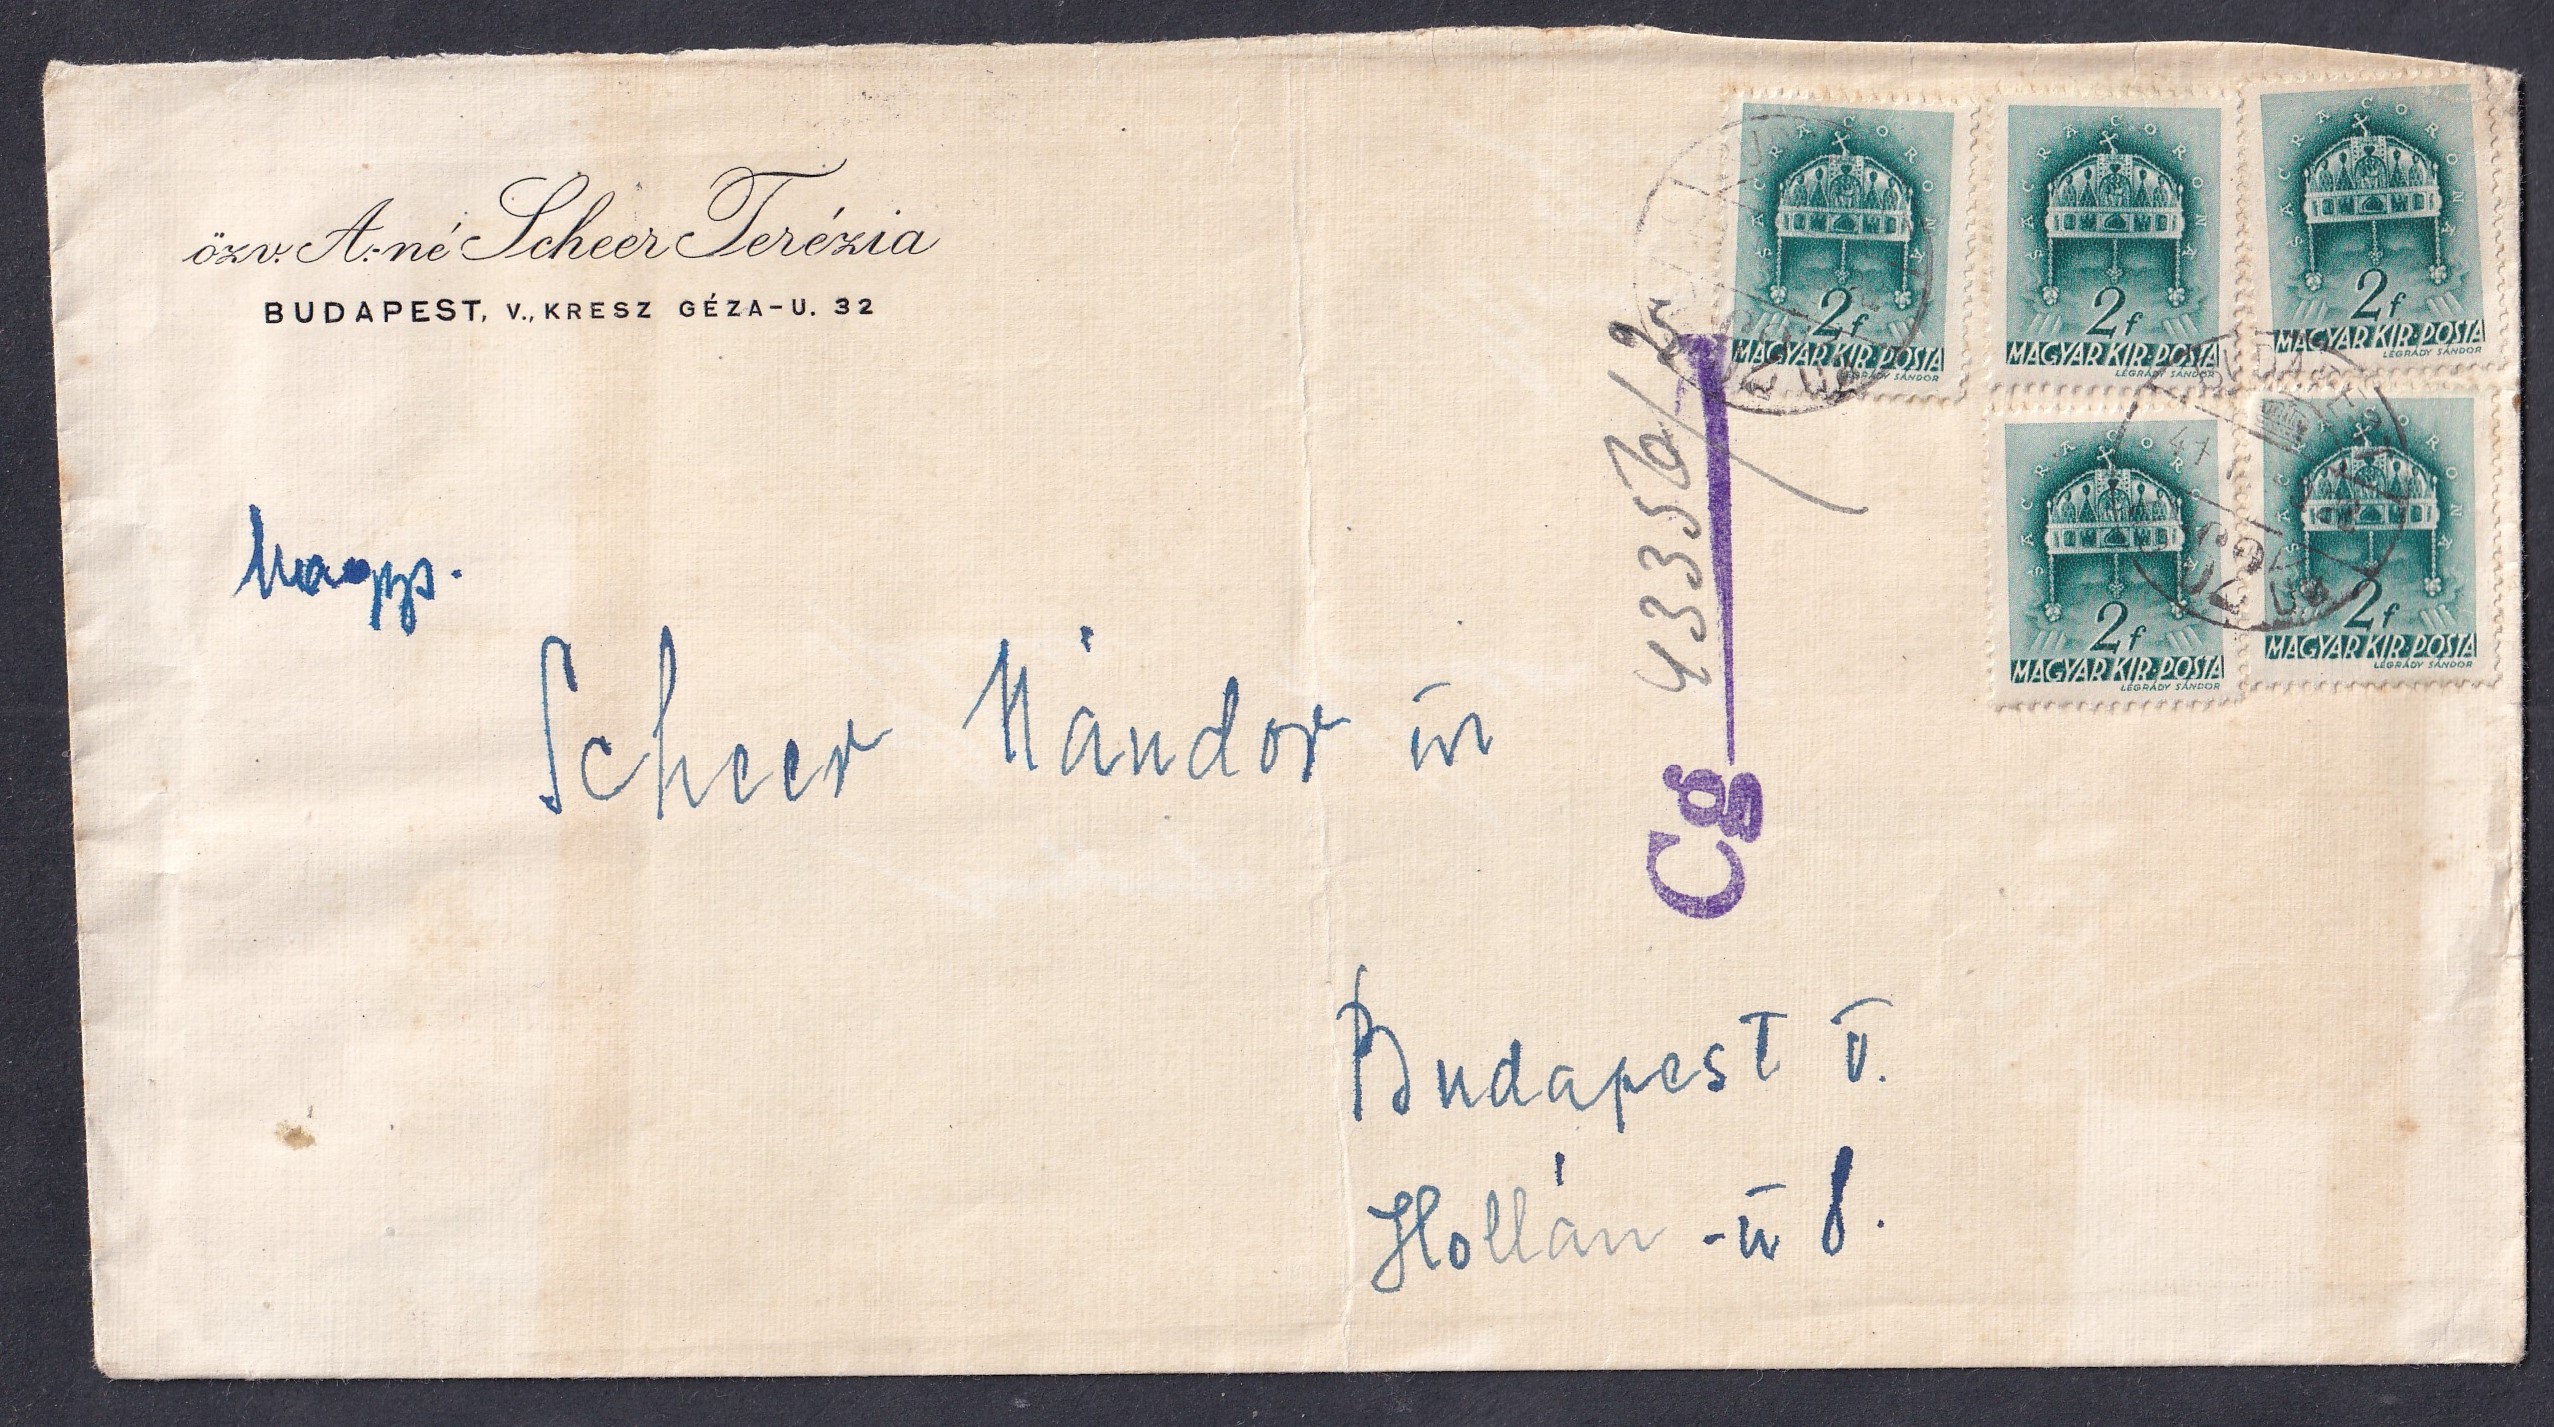 özv. A.-né Scheer Terézia
BUDAPEST, V., KRESZ GÉZA-U. 32
SACRA CORONA
2f
MAGYAR KIR·POSTA
LÉGRÁDY SÁNDOR
SACRA CORONA
2f
MAGYAR KIR·POSTA
LÉGRÁDY SÁNDOR
SACRA CORONA
2f
MAGYAR KIR·POSTA
LÉGRÁDY SÁNDOR
SACRA CORONA
2f
MAGYAR KIR·POSTA
LÉGRÁDY SÁNDOR
SACRA CORONA
2f
MAGYAR KIR·POSTA
LÉGRÁDY SÁNDOR
BUDAPEST
Cg
Scheer Nándor úr
Budapest V.
Hollán-u 8.